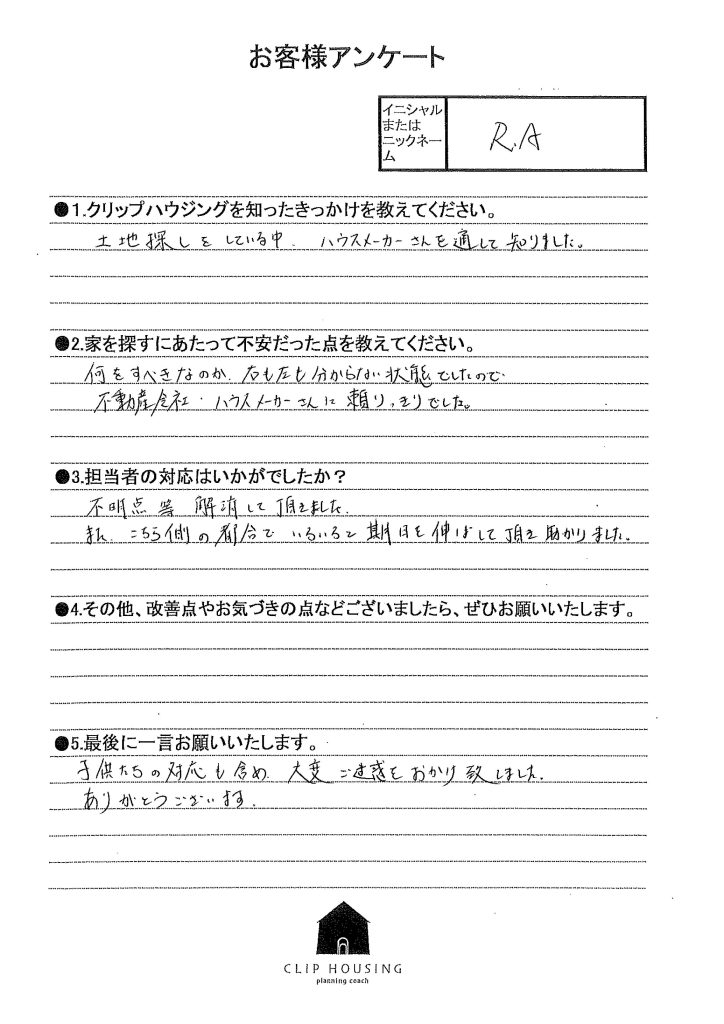 お客様アンケート
イニシャル
または
ニックネー
ム
R.A
●1.クリップハウジングを知ったきっかけを教えてください。
土地探しをしている中、ハウスメーカーさんを通して知りました。
●2.家を探すにあたって不安だった点を教えてください。
何をすべきなのか、右も左も分からない状態でしたので
不動産会社・ハウスメーカーさんに頼りっきりでした。
●3.担当者の対応はいかがでしたか？
不明点等 解消して頂きました。
また、こちら側の都合でいろいろと期日を伸ばして頂き助かりました。
●4.その他、改善点やお気づきの点などございましたら、ぜひお願いいたします。
●5.最後に一言お願いいたします。
子供たちの対応も含め、大変ご迷惑をおかけ致しました。
ありがとうございます。
CLIP HOUSING
planning coach